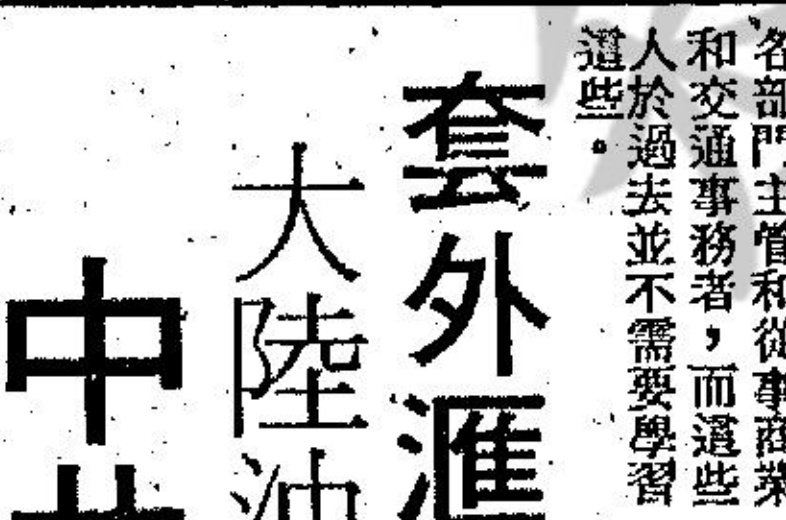 各部門主管和從事商業
和交通事務者，而這些
人於過去並不需要學習
這些。
套外滙
大陸沖
中共